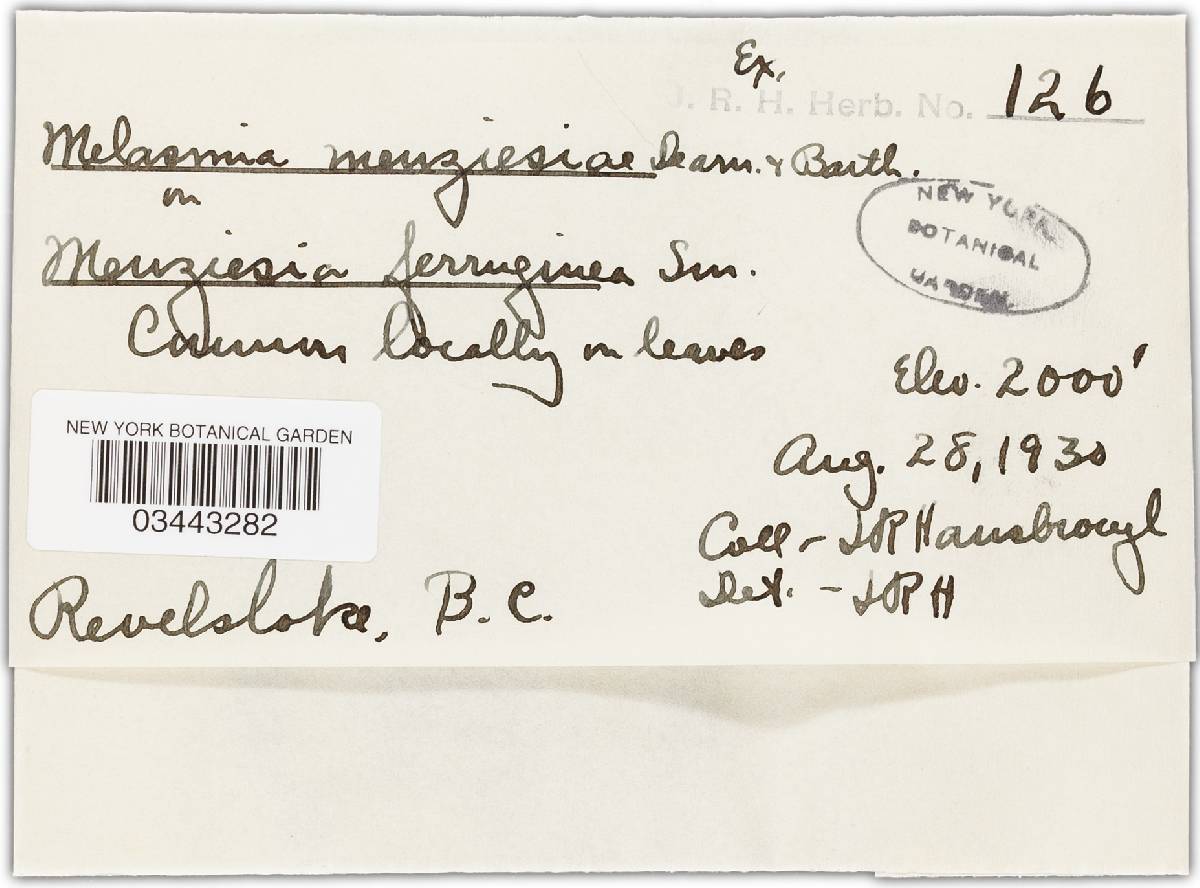 Ex. J. R. H. Herb. No. 126
Melasmia menziesiae Dearn. & Barth.
on
Menziesia ferruginea Sm.
Common locally on leaves
NEW YORK
BOTANICAL
GARDEN.
Elev. 2000'
Aug. 28, 1930
Coll - JRHansbrough
Det. - JRH
NEW YORK BOTANICAL GARDEN
03443282
Revelstoke, B.C.